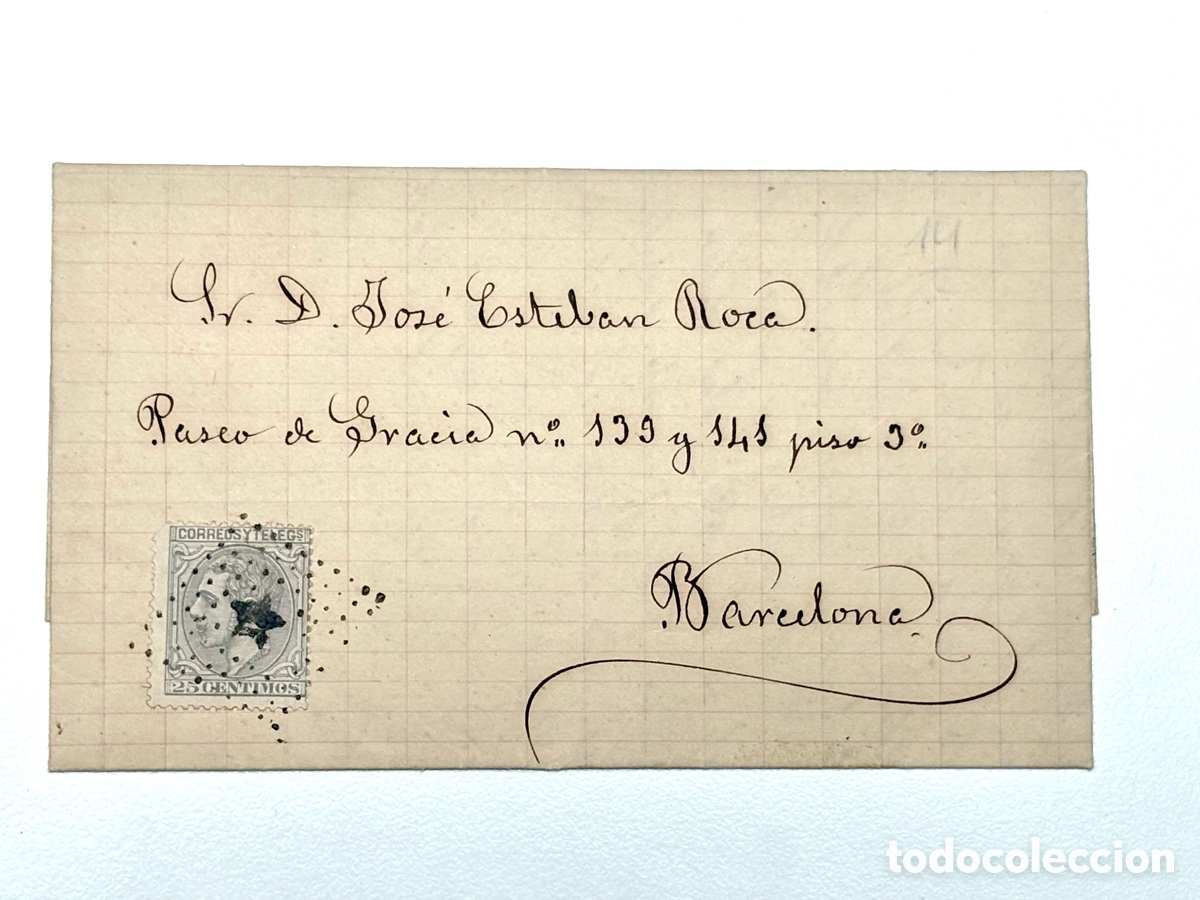 14
Sr. D. José Esteban Roca.
Paseo de Gracia nº 139 y 141 piso 3º
CORREOS Y TELEGS
25 CENTIMOS
Barcelona.
todocoleccion